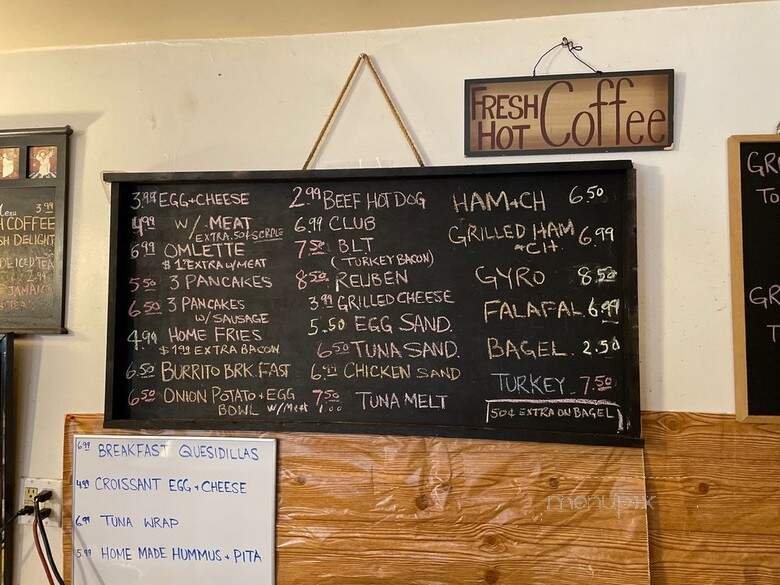 FRESH HOT Coffee
3.99 EGG+CHEESE
4.99 W/ MEAT
EXTRA .50¢
6.99 OMLETTE
EXTRA W/MEAT
5.50 3 PANCAKES
6.50 3 PANCAKES
W/ SAUSAGE
4.99 HOME FRIES
$1.99 EXTRA BACON
6.50 BURRITO BRK.FAST
6.50 ONION POTATO+EGG
BOWL W/Meat
2.99 BEEF HOT DOG
6.99 CLUB
7.50 BLT
(TURKEY BACON)
8.50 REUBEN
3.99 GRILLED CHEESE
5.50 EGG SAND.
6.50 TUNA SAND.
CHICKEN SAND
7.50 TUNA MELT
HAM+CH 6.50
GRILLED HAM 6.99
+CH.
GYRO 8.50
FALAFAL 6.99
BAGEL. 2.50
TURKEY. 7.50
50¢ EXTRA ON BAGEL
6.99 BREAKFAST QUESIDILLAS
4.99 CROISSANT EGG+CHEESE
6.99 TUNA WRAP
5.99 HOME MADE HUMMUS+PITA
3.99
COFFEE
DELIGHT
ICED TEA
JAMAICA
GR
TO
GR
T
menupix